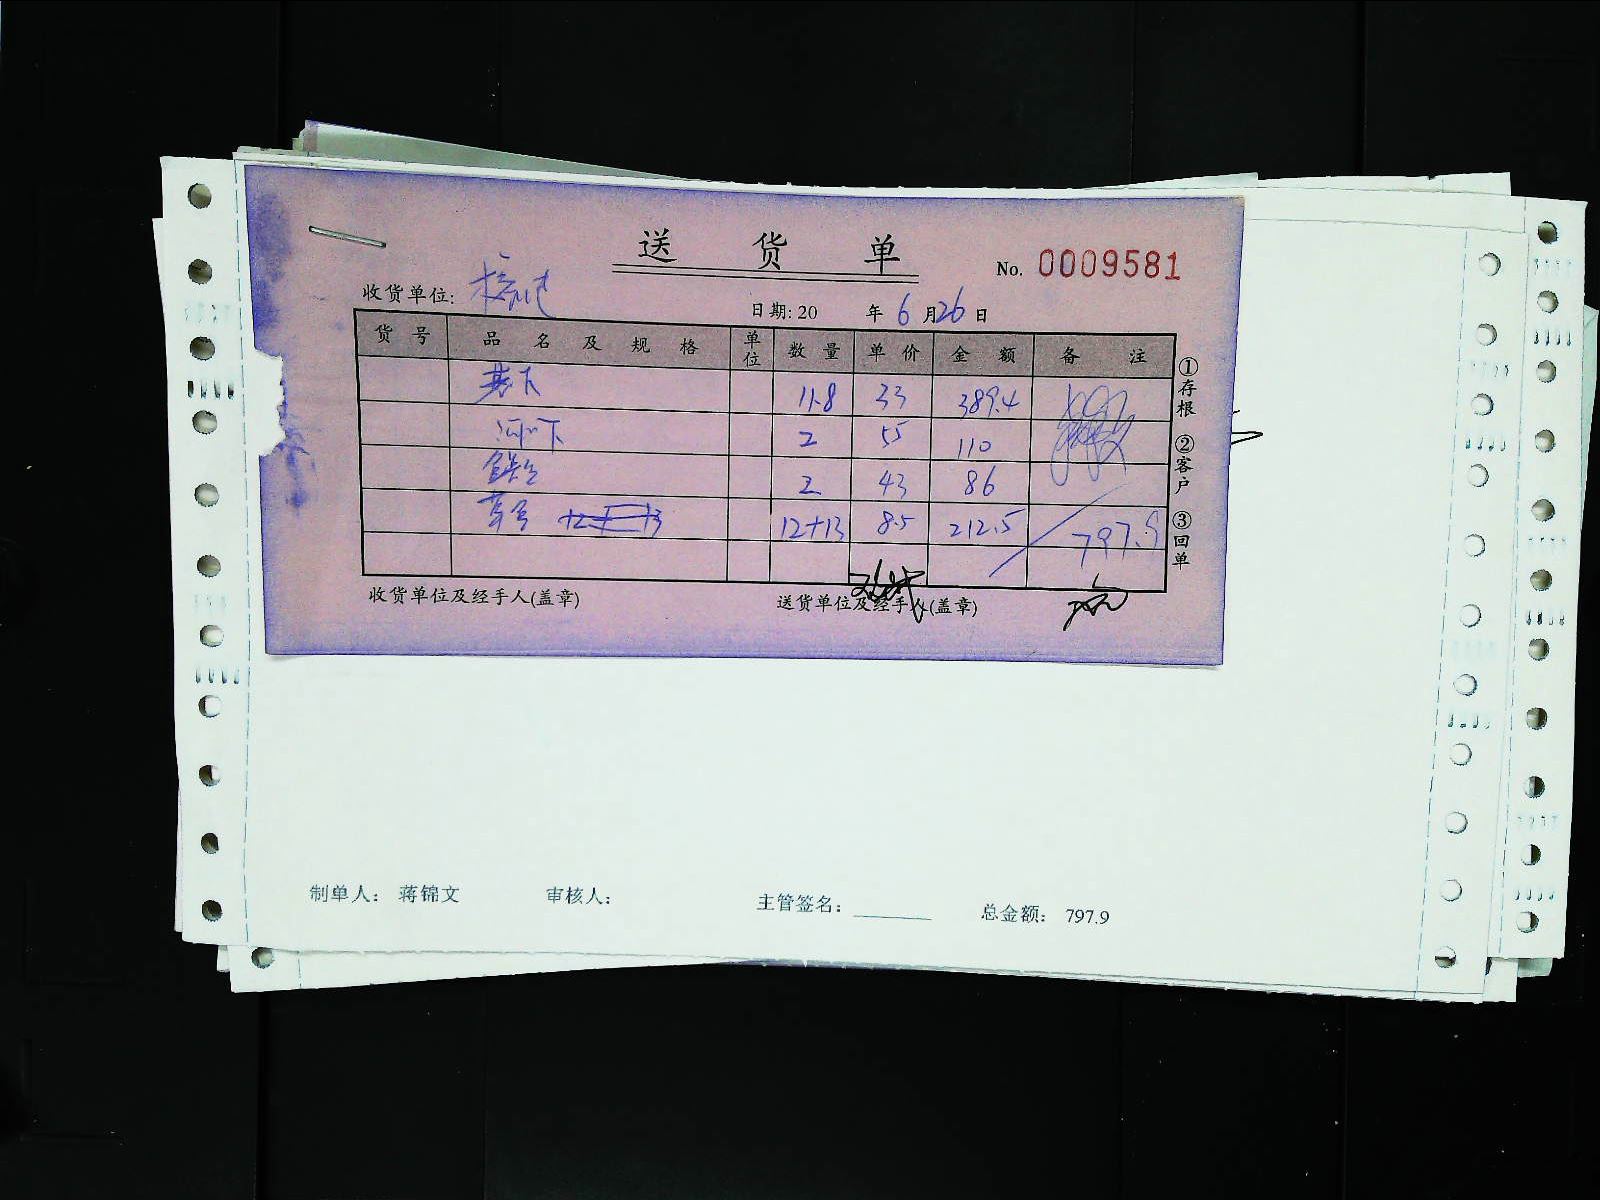 送货单
No. 0009581
收货单位:
日期: 20 年 6 月 26 日
货号 品名及规格 单位 数量 单价 金额 备注
基下 11.8 33 389.4
河下 2 55 110
2 43 86
草鱼 12+13 8.5 212.5 797.9
①存根 ②客户 ③回单
收货单位及经手人(盖章) 送货单位及经手人(盖章)
制单人: 蒋锦文 审核人: 主管签名: 总金额: 797.9